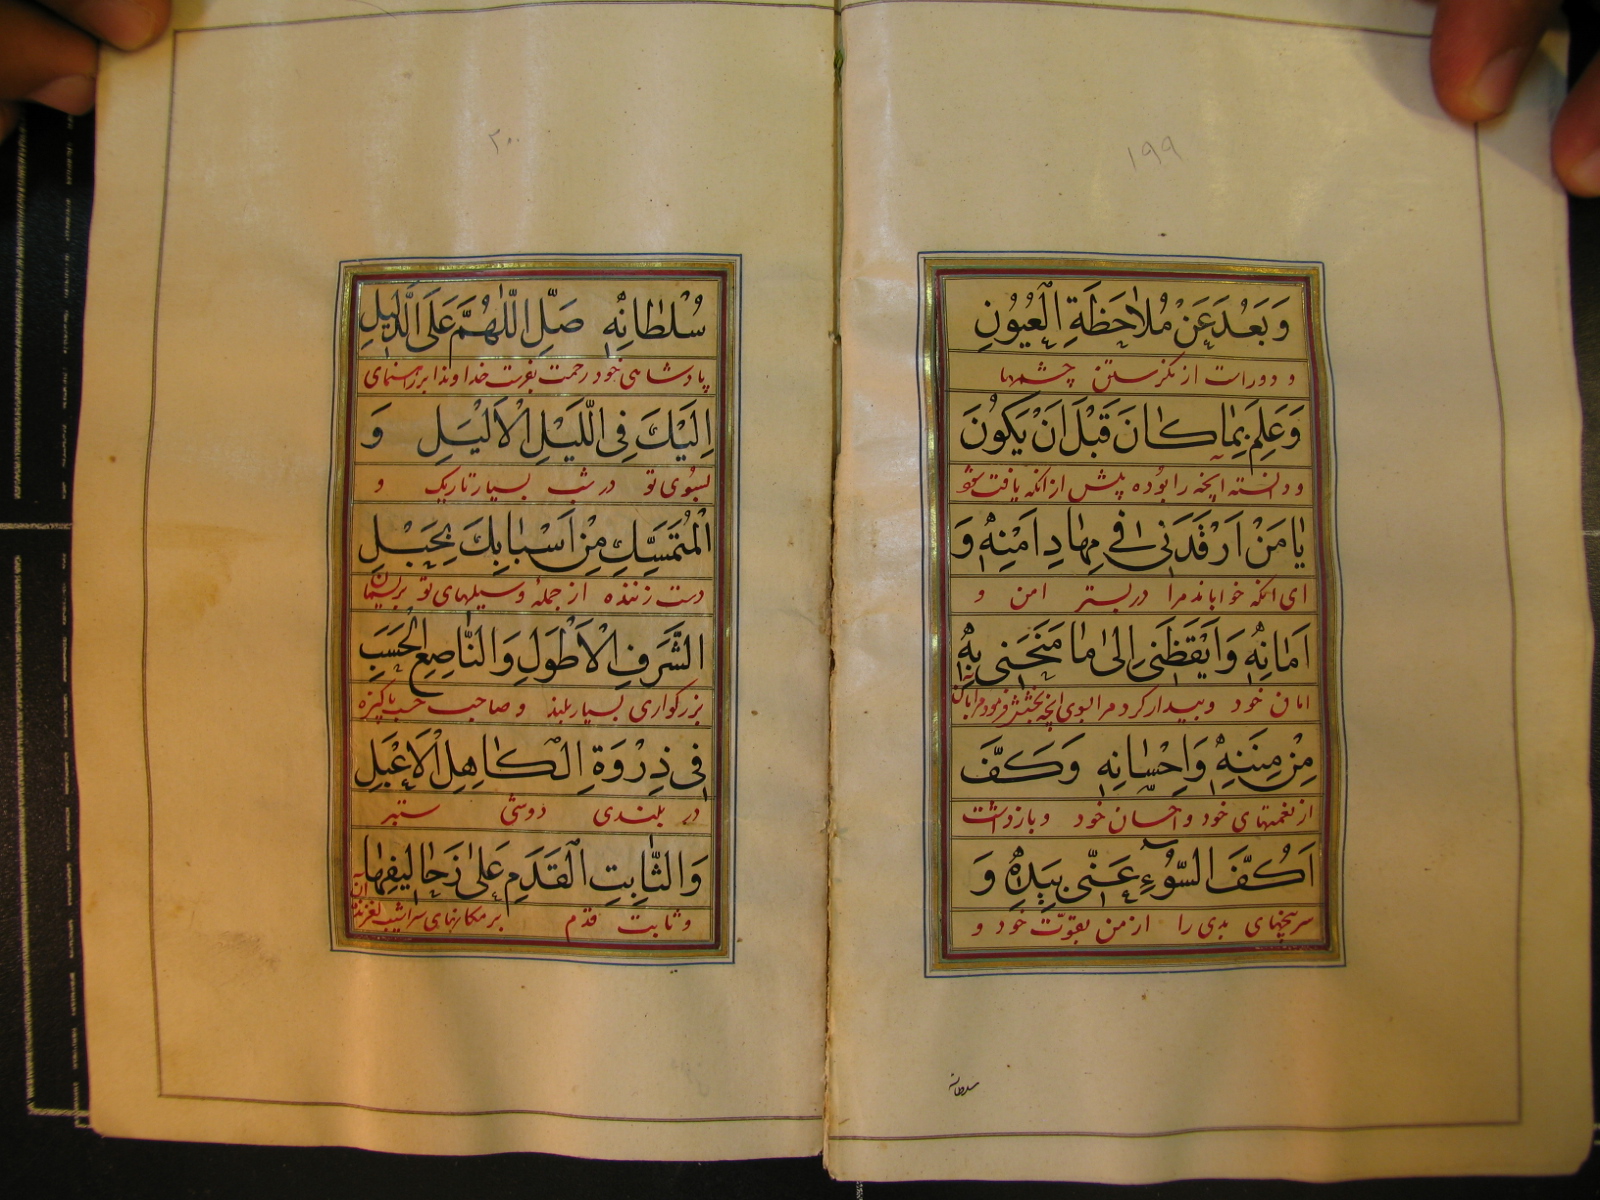 ١٩٩
وَبَعُدَ عَنْ مُلاٰحَظَةِ الْعُيُونِ
و دور است از نگرستن چشمها
وَعَلِمَ بِمٰا كٰانَ قَبْلَ اَنْ يَكُونَ
و دانسته آنچه را بوده پیش از آنکه یافت شود
يٰا مَنْ اَرْقَدَنى فى مِهٰادِ اَمْنِهٖ وَ
ای آنکه خواباند مرا در بستر امن و
اَمٰانِهٖ وَاَيْقَظَنى اِلىٰ مٰا مَنَحَنى بِهٖ
امان خود و بیدار کرد مرا بسوی آنچه بخشش فرمود مرا بآن
مِنْ مِنَنِهٖ وَاِحْسٰانِهٖ وَكَفَّ
از نعمتهای خود و احسان خود و بازداشت
اَكُفَّ السُّوۤءِ عَنّى بِيَدِهٖ وَ
سرپنجهای بدی را از من بقوّت خود و
سلطانه
٢٠٠
سُلْطٰانِهٖ صَلِّ اللّٰهُمَّ عَلَى الدَّليلِ
پادشاهی خود رحمت بفرست خداوندا بر رهنمای
اِلَيْكَ فِى اللَّيْلِ الْاَلْيَلِ وَ
بسوی تو در شب بسیار تاریک و
الْمُتَمَسِّكِ مِنْ اَسْبٰابِكَ بِحَبْلِ
دست زننده از جملهٔ وسیلهای تو بریسمان
الشَّرَفِ الْاَطْوَلِ وَالنّٰاصِعِ الْحَسَبِ
بزرگواری بسیار بلند و صاحب حسب پاکیزه
فى ذِرْوَةِ الْكٰاهِلِ الْاَعْبَلِ
در بلندی دوش ستبر
وَالثّٰابِتِ الْقَدَمِ عَلىٰ زَحٰاليفِهٰا
و ثابت قدم بر مکانهای سراشیب لغزنده آن